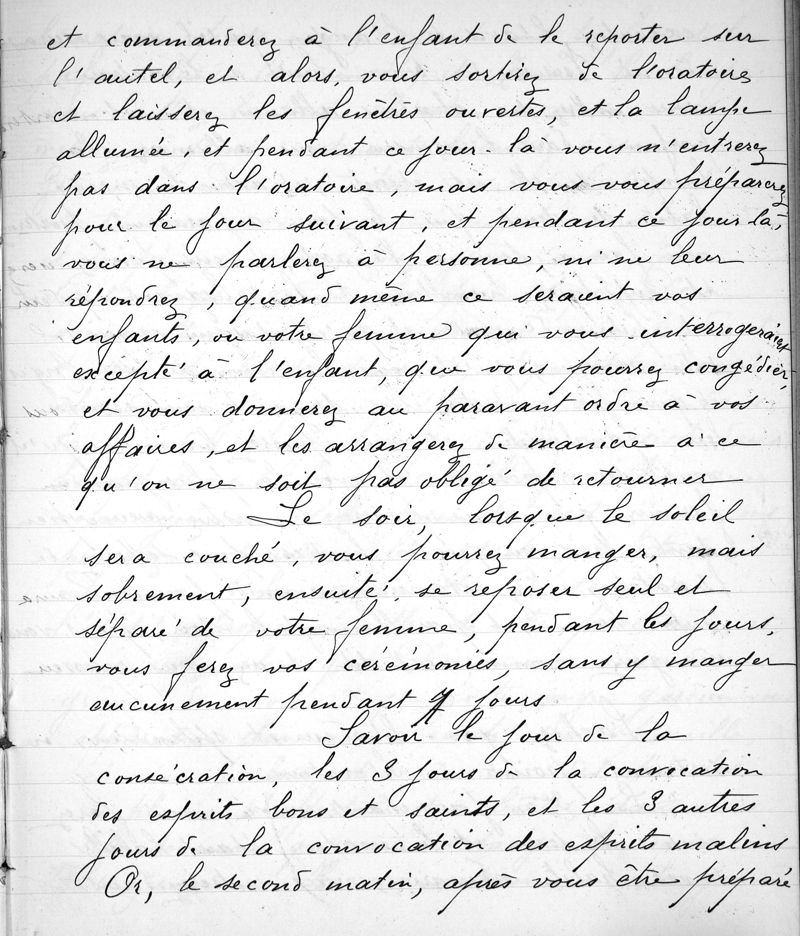 et commanderez à l'enfant de le reporter sur
l'autel, et alors, vous sortirez de l'oratoire
et laisserez les fenêtres ouvertes, et la lampe
allumée, et pendant ce jour-là vous n'entrerez
pas dans l'oratoire, mais vous vous préparerez
pour le jour suivant, et pendant ce jour là,
vous ne parlerez à personne, ni ne leur
répondrez, quand même ce seraient vos
enfants, ou votre femme qui vous interrogeraient
excepté à l'enfant, que vous pourrez congédier,
et vous donnerez au paravant ordre à vos
affaires, et les arrangerez de manière à ce
qu'on ne soit pas obligé de retourner
Le soir, lorsque le soleil
sera couché, vous pourrez manger, mais
sobrement, ensuite, se reposer seul et
séparé de votre femme, pendant les jours,
vous ferez vos cérémonies, sans y manger
aucunement pendant 7 jours
Savoir le jour de la
consécration, les 3 jours de la convocation
des esprits bons et saints, et les 3 autres
jours de la convocation des esprits malins
Or, le second matin, après vous être préparé